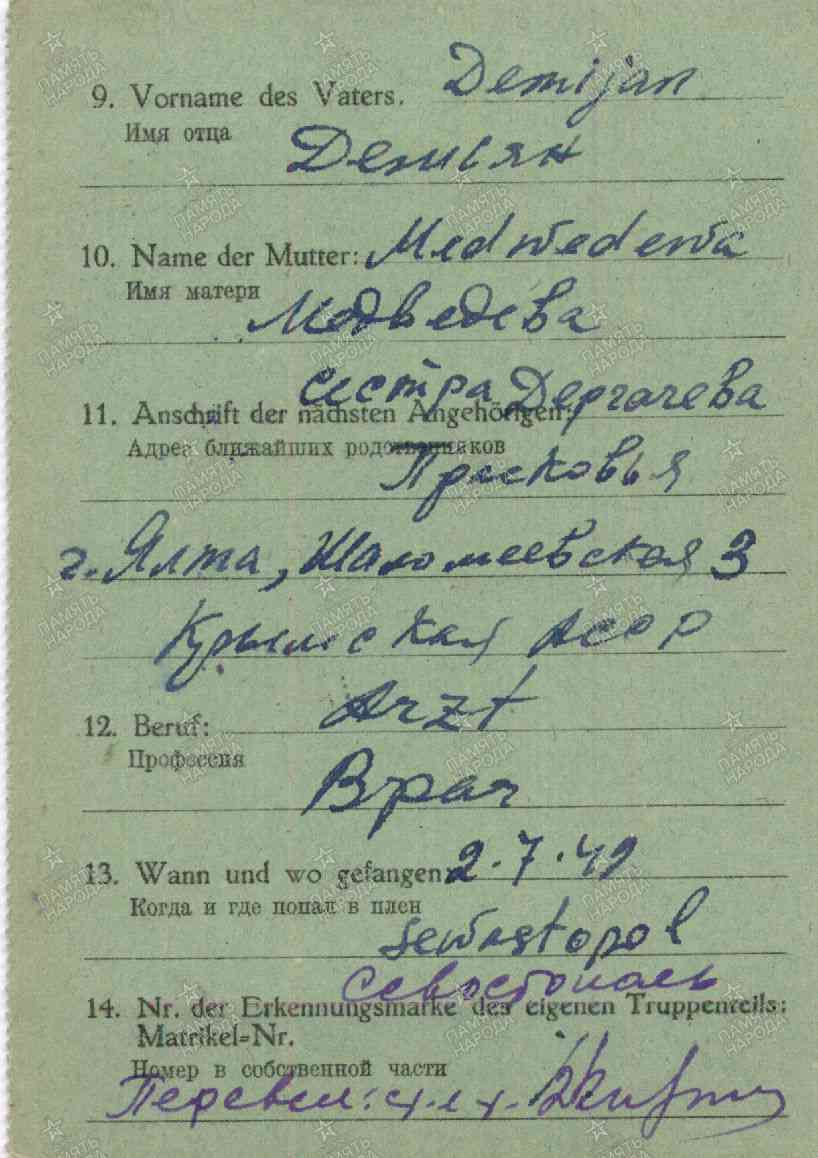 9. Vorname des Vaters. Demijan
Имя отца
Демьян
10. Name der Mutter: Medwedewa
Имя матери
Медведева
сестра Дергачева
11. Anschrift der nächsten Angehörigen:
Адрес ближайших родственников
Прасковья
г. Ялта, 3
Крымская АССР
12. Beruf: Arzt
Профессия
Врач
13. Wann und wo gefangen: 2.7.42
Когда и где попал в плен
Sewastopol
Севостополь
14. Nr. der Erkennungsmarke des eigenen Truppenteils:
Matrikel=Nr.
Номер в собственной части
Перевел:
ПАМЯТЬ НАРОДА